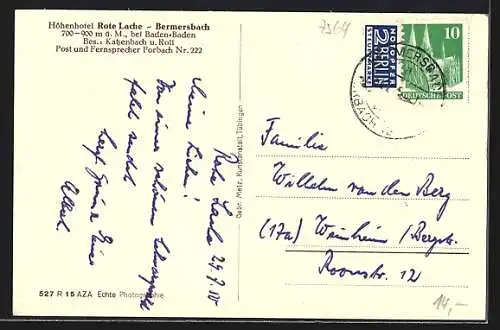 Höhenhotel Rote Lache – Bermersbach
700–900 m ü. M., bei Baden-Baden
Bes.: Katzenbach u. Roll
Post und Fernsprecher Forbach Nr. 222
Rote Lache 29.9.50
Meine Lieben!
Von einer schönen
fahrt sendet
herzl. Grüsse Euer
Albert
Gebr. Metz, Kunstanstalt, Tübingen
527 R 15 AZA Echte Photographie
NOTOPFER
2 BERLIN
STEUERMARKE
10
DEUTSCHE POST
Familie
Wilhelm van den Berg
(17a) Weinheim/Bergstr.
Roonstr. 12
14,-